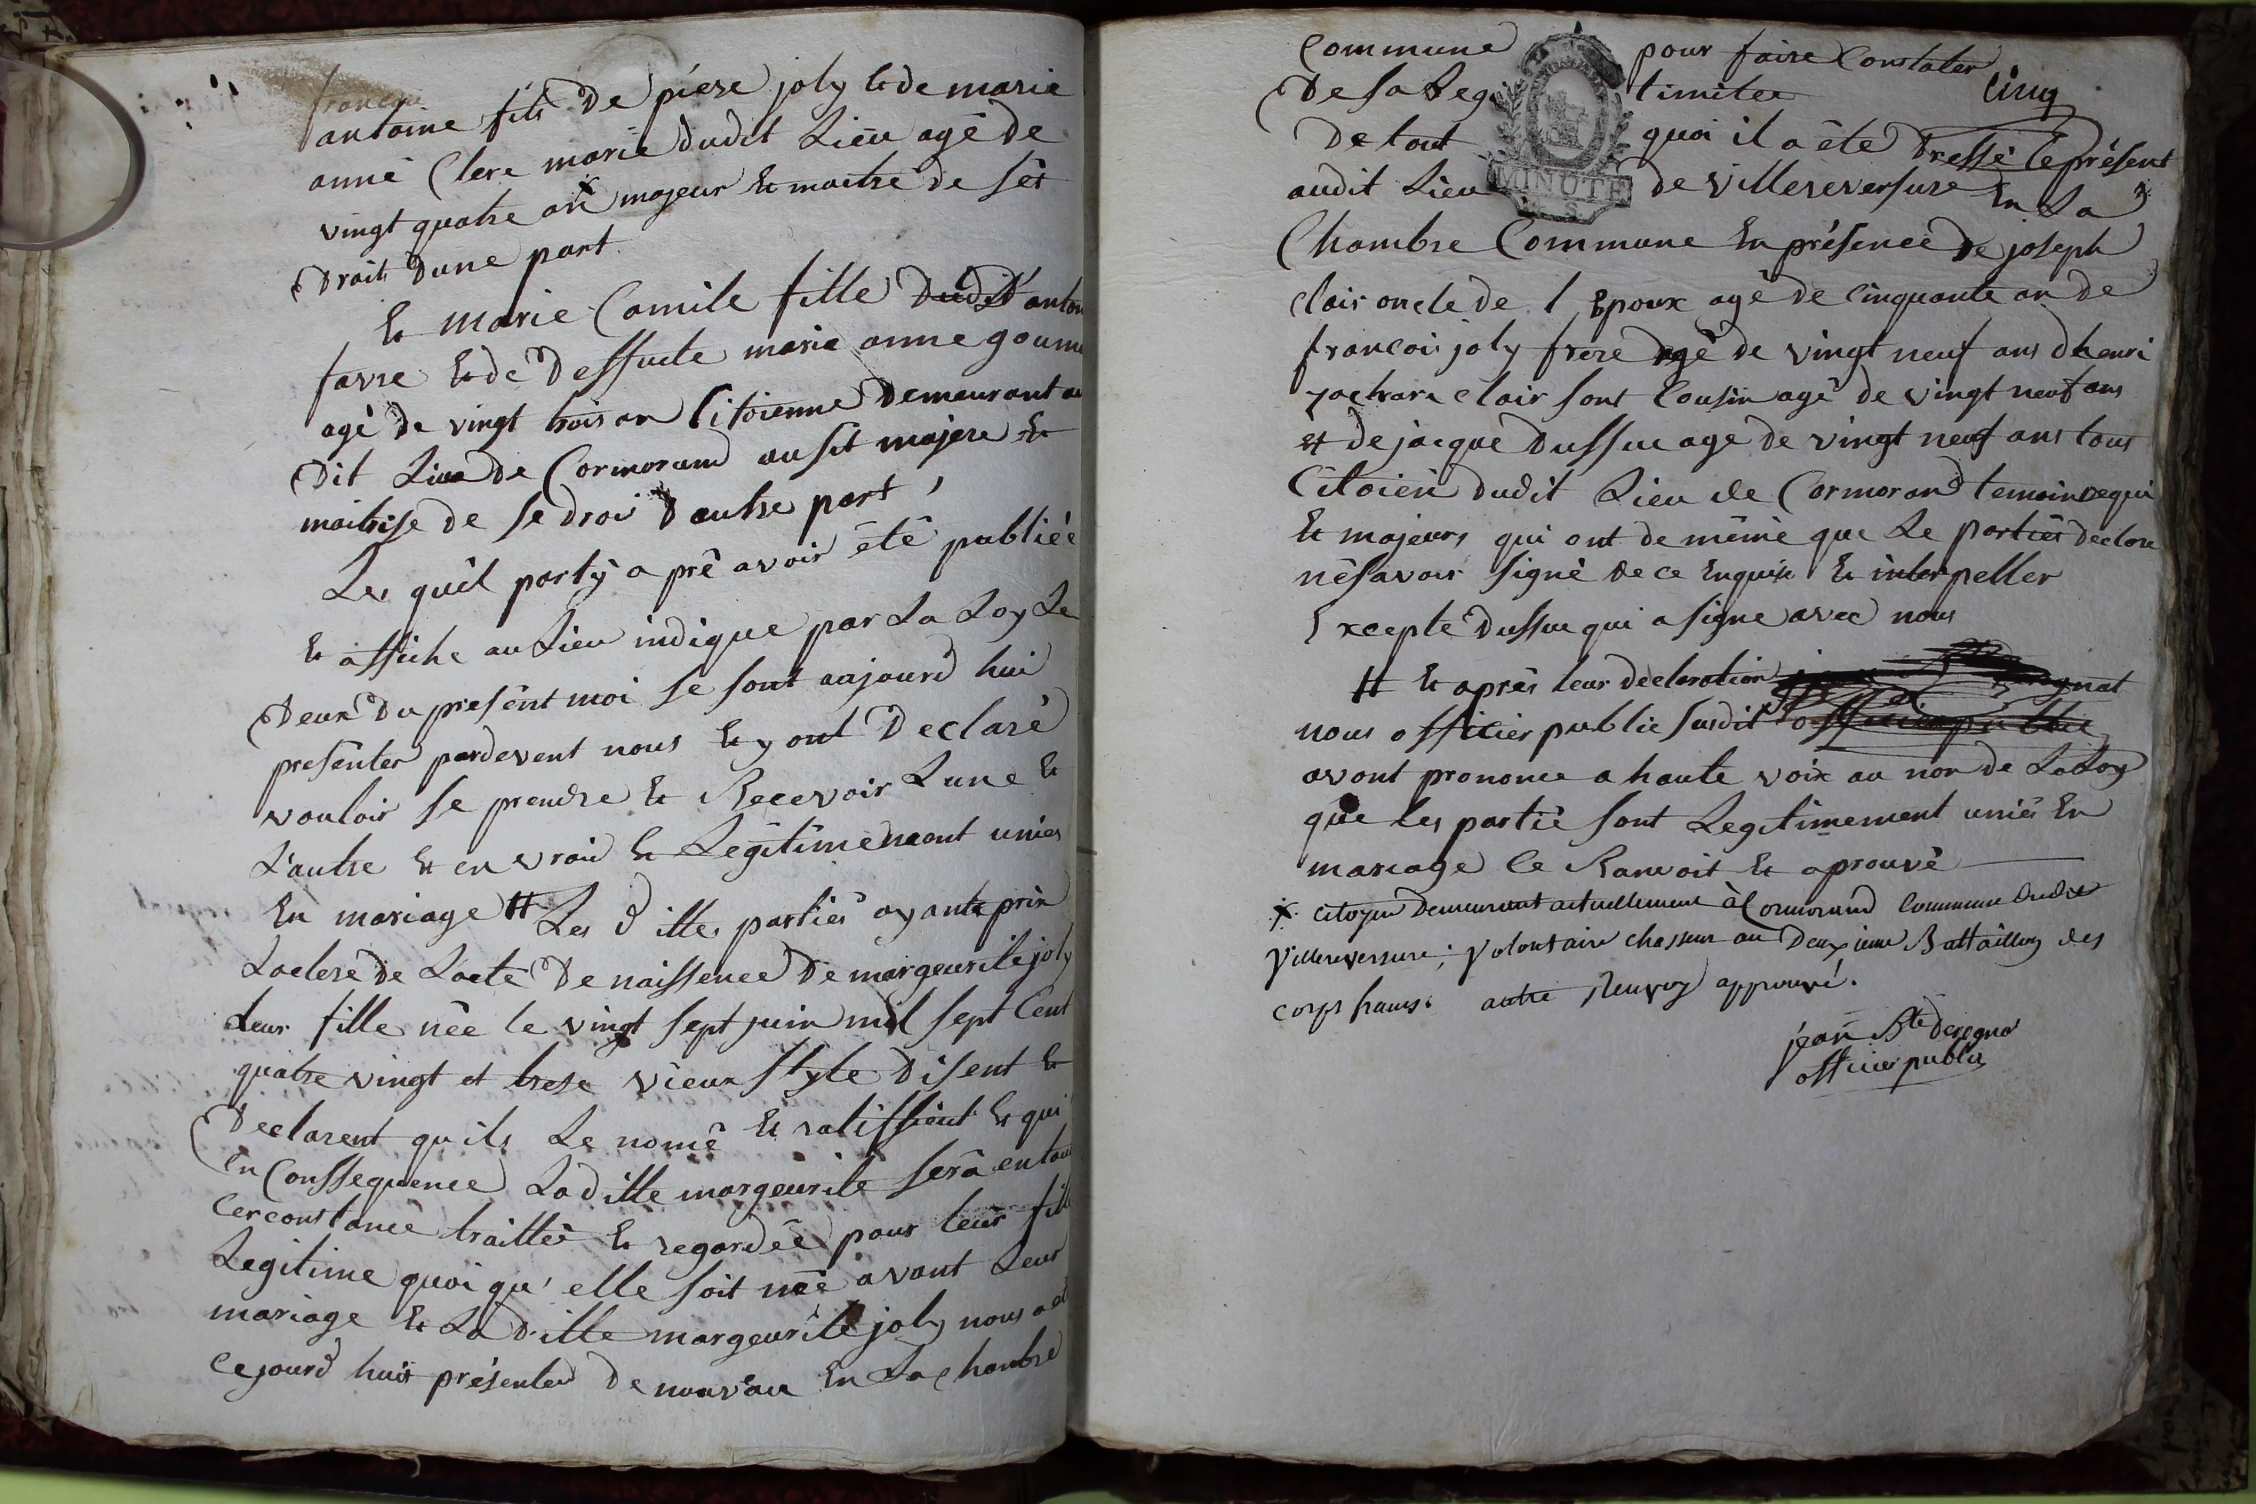 antoine fils De piere joly et de marie
anne Clere marié dudit Lieu agé de
vingt quatre an majeur et maitre de ses
Droits Dune part
Et marie Camile fille Dudit anton
favre et de Deffucte marie anne goume
agé de vingt trois an Citoienne Demeurant au
Dit Lieu De Cormorand ausit majere et
maitrise de se droi D autre part
Les quel party a pré avoir été publiéé
et affiche au Lieu indique par La Loy Le
Deux Du present moi se sont aujourd hui
presenter pardevent nous et y ont Declaré
vouloir se prendre et Recevoir L une et
L'autre et en vrai et Legitimement unies
En mariage # Les d itte parties ayante prix
Laclere de Lacte De naissence De margeurite joly
Leur fille née le vingt sept juin mil sept Cent
quatre vingt et trese vieux Style Disent et
Declarent qu ils Le nomé et ratiffient et qui
en Conssequence Laditte margeurite sera en tout
Cerconstance traittée et regardéé pour leur fille
Legitime quoi qu' elle soit néé avant Leur
mariage et La ditte margeurite joly nous a eté
Cejourd hui présenter De nouveau En La Chambre
Commune pour faire Constater
De sa Leg timitee Cinq
De tout quoi il a éte Dressé le présent
audit Lieu de villereversure En La
MINUTE
Chambre Commune En présence De joseph
clair oncle de l Epoux agé de Cinquante an de
francois joly frere agé de vingt neuf ans d henri
clair sont Cousin agé de vingt neuf ans
et de jacque Dussuc age de vingt neuf ans tous
Citoien dudit Lieu de Cormorand temoin
et majeurs qui ont de mème que Le parties declare
nésavoir signé de ce Enquis et interpeller
Excepte Dussuc qui a signe avec nous
# Et après leur declaration
nous officier public susdit
avont prononce a haute voix au non de La Loy
que les partié sont Legitimement uniés En
mariage Ce Ranvoit et aprouvé
x citoyen Demeurant actuellement à Cormorand Commune dudit
Villereversure; Volontaire chasseur au Deuxieme Battaillon des
corps francs. autre Renvoy approuvé.
jean Bte deregnat
officier public